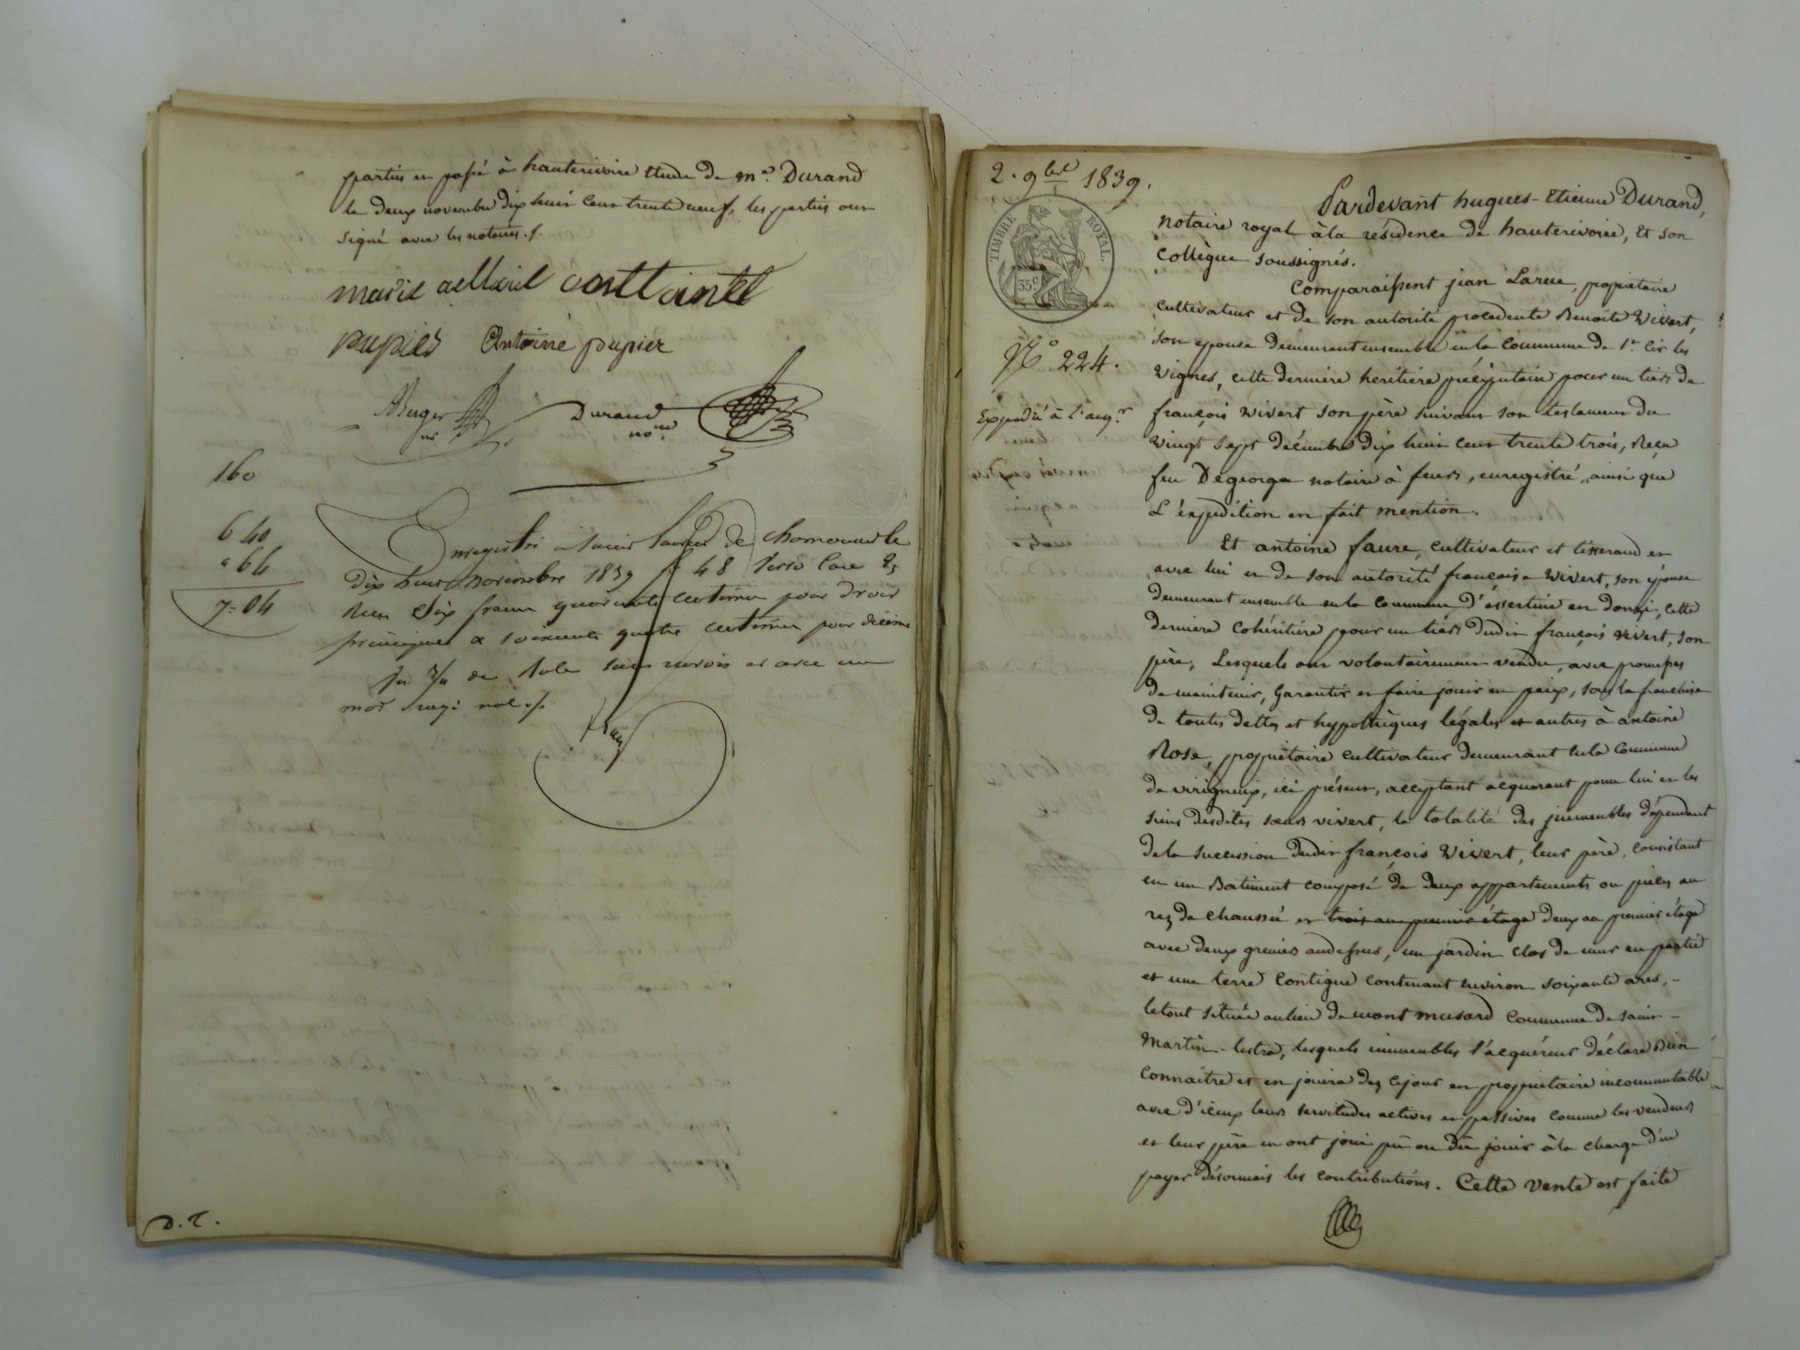 parties en passé à hauterivoire Etude de me. Durand
le deux novembre dix huit cent trente neuf, les parties ont
signé avec les notaires ./.
pupier Antoine pupier
Berger Durand
nore
160
6 40
" 64
7 = 04
Enregistré à Saint Laurent de chamousset le
dix huit novembre 1839 fo 48 Verso Case
Reçu Six francs quarante centimes pour droit
principal & soixante quatre centimes pour décime
mot rayé nul ./.
D.L.
2. 9bre 1839.
TIMBRE ROYAL.
35c
No 224.
Expédié à l'acqr
Pardevant hugues-Etienne Durand,
notaire royal à la résidence de hauterivoire, Et son
Collègue soussignés.
Comparaissent jean Larue, propriétaire
cultivateur et de son autorité procedente Benoite Vivert,
son epouse demeurant ensemble en la Commune de st. Cir les
Vignes, cette dernière heritière préciputaire pour un tiers de
françois Vivert son père suivant son testament du
vingt sept décembre dix huit cent trente trois, Reçu
feu Degeorge notaire à feurs, enregistré, ainsi que
L'expédition en fait mention.
Et antoine faure, cultivateur et tisserand et
avec lui et de son autorité françoise Vivert, son épouse
demeurant ensemble en la Commune d'essertine en donzi, cette
dernière Cohéritière pour un tiers dudit françois Vivert, son
père, Lesquels ont volontairement vendu, avec promesses
de maintenir, garantir et faire jouir en paix, sous la franchise
de toutes dettes et hypothèques légales et autres à antoine
Rose, propriétaire cultivateur demeurant en la Commune
de virigneux, ici présent, acceptant acquerant pour lui et les
siens desdites sœurs vivert, la totalité des immeubles dépendant
de la succession dudit françois Vivert, leur père, consistant
en un Batiment composé de deux appartements ou pièces au
rez de chaussée et trois au premier étage deux au premier étage
avec deux greniers audessus, un jardin clos de mur en partie
et une terre contigue contenant environ soixante ares, -
le tout situé au lieu de mont musard Commune de saint -
Martin-lestra, lesquels immeubles l'acquéreur déclare Bien
Connaître et en jouira dez cejour en propriétaire incommutable
avec d'iceux leurs servitudes actives et passives comme les vendeurs
et leur père en ont joui pû ou dû jouir à la charge d'en
payer désormais les contributions. Cette vente est faite